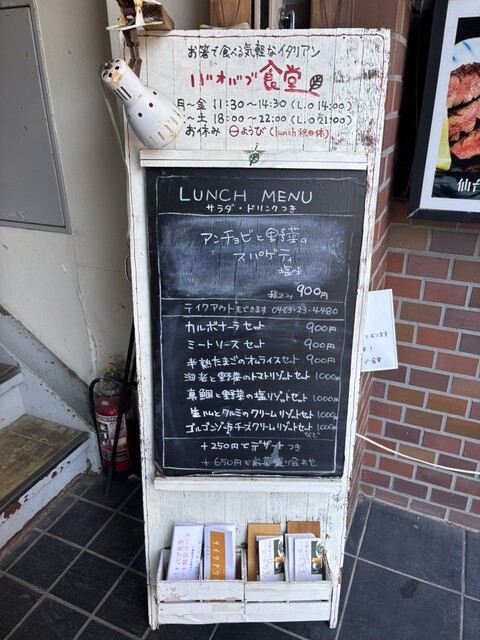 お箸で食べる気軽なイタリアン
バオバブ食堂
月～金 11:30～14:30 (L.o 14:00)
～土 18:00～22:00 (L.o 21:00)
お休み 日ようび (lunch 祝日休)
LUNCH MENU
サラダ・ドリンクつき
アンチョビと野菜の
スパゲティ
塩味
税込み 900円
テイクアウトもできます 0463-23-4480
カルボナーラ セット 900円
ミートソース セット 900円
半熟たまごのオムライスセット 900円
海老と野菜のトマトリゾットセット 1000円
真鯛と野菜の塩リゾットセット 1000円
生ハムとクルミのクリームリゾットセット 1000円
ゴルゴンゾーラチーズクリームリゾットセット 1000円
など
+250円でデザートつき
+650円で前菜盛り合わせ
テイクアウ
仙台